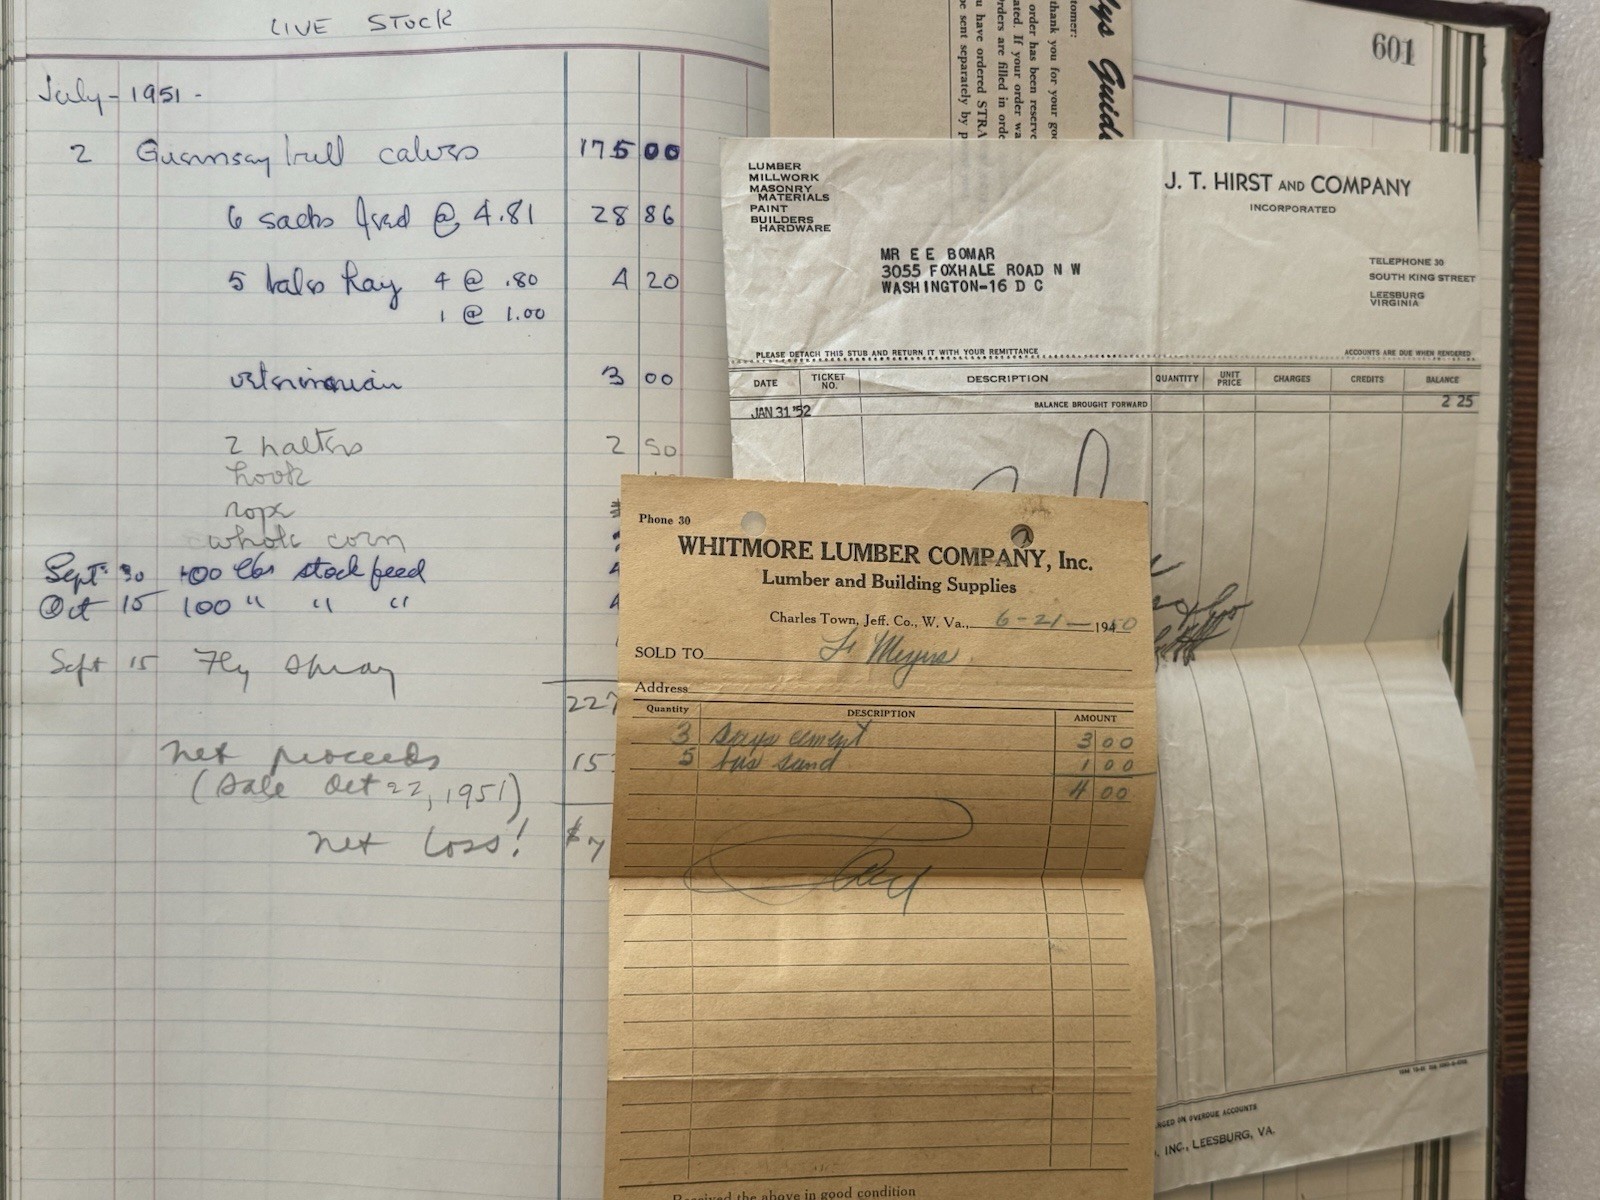 LIVE STOCK
July - 1951 -
2 Guernsey bull calves 175 00
6 sacks feed @ 4.81 28 86
5 bales hay 4 @ .80 4 20
1 @ 1.00
veterinarian 3 00
2 halters 2 50
hook
rope
whole corn
Sept 30 100 lbs stock feed 4
Oct 15 100 " " " 4
Sept 15 Fly spray
227
net proceeds 15
(Sale Oct 22, 1951)
net loss! $7
601
lys Guid
tomer:
thank you for your go
order has been reserve
ated. If your order wa
rders are filled in orde
u have ordered STRA
be sent separately by p
LUMBER
MILLWORK
MASONRY
MATERIALS
PAINT
BUILDERS
HARDWARE
J. T. HIRST AND COMPANY
INCORPORATED
MR E E BOMAR
3055 FOXHALE ROAD N W
WASHINGTON-16 D C
TELEPHONE 30
SOUTH KING STREET
LEESBURG
VIRGINIA
PLEASE DETACH THIS STUB AND RETURN IT WITH YOUR REMITTANCE
ACCOUNTS ARE DUE WHEN RENDERED
DATE TICKET NO. DESCRIPTION QUANTITY UNIT PRICE CHARGES CREDITS BALANCE
JAN 31 '52 BALANCE BROUGHT FORWARD 2 25
NGED ON OVERDUE ACCOUNTS
, INC., LEESBURG, VA.
Phone 30
WHITMORE LUMBER COMPANY, Inc.
Lumber and Building Supplies
Charles Town, Jeff. Co., W. Va., 6-21- 1950
SOLD TO Meyers
Address
Quantity DESCRIPTION AMOUNT
3 bags cement 3 00
5 bus sand 1 00
4 00
Paid
Received the above in good condition